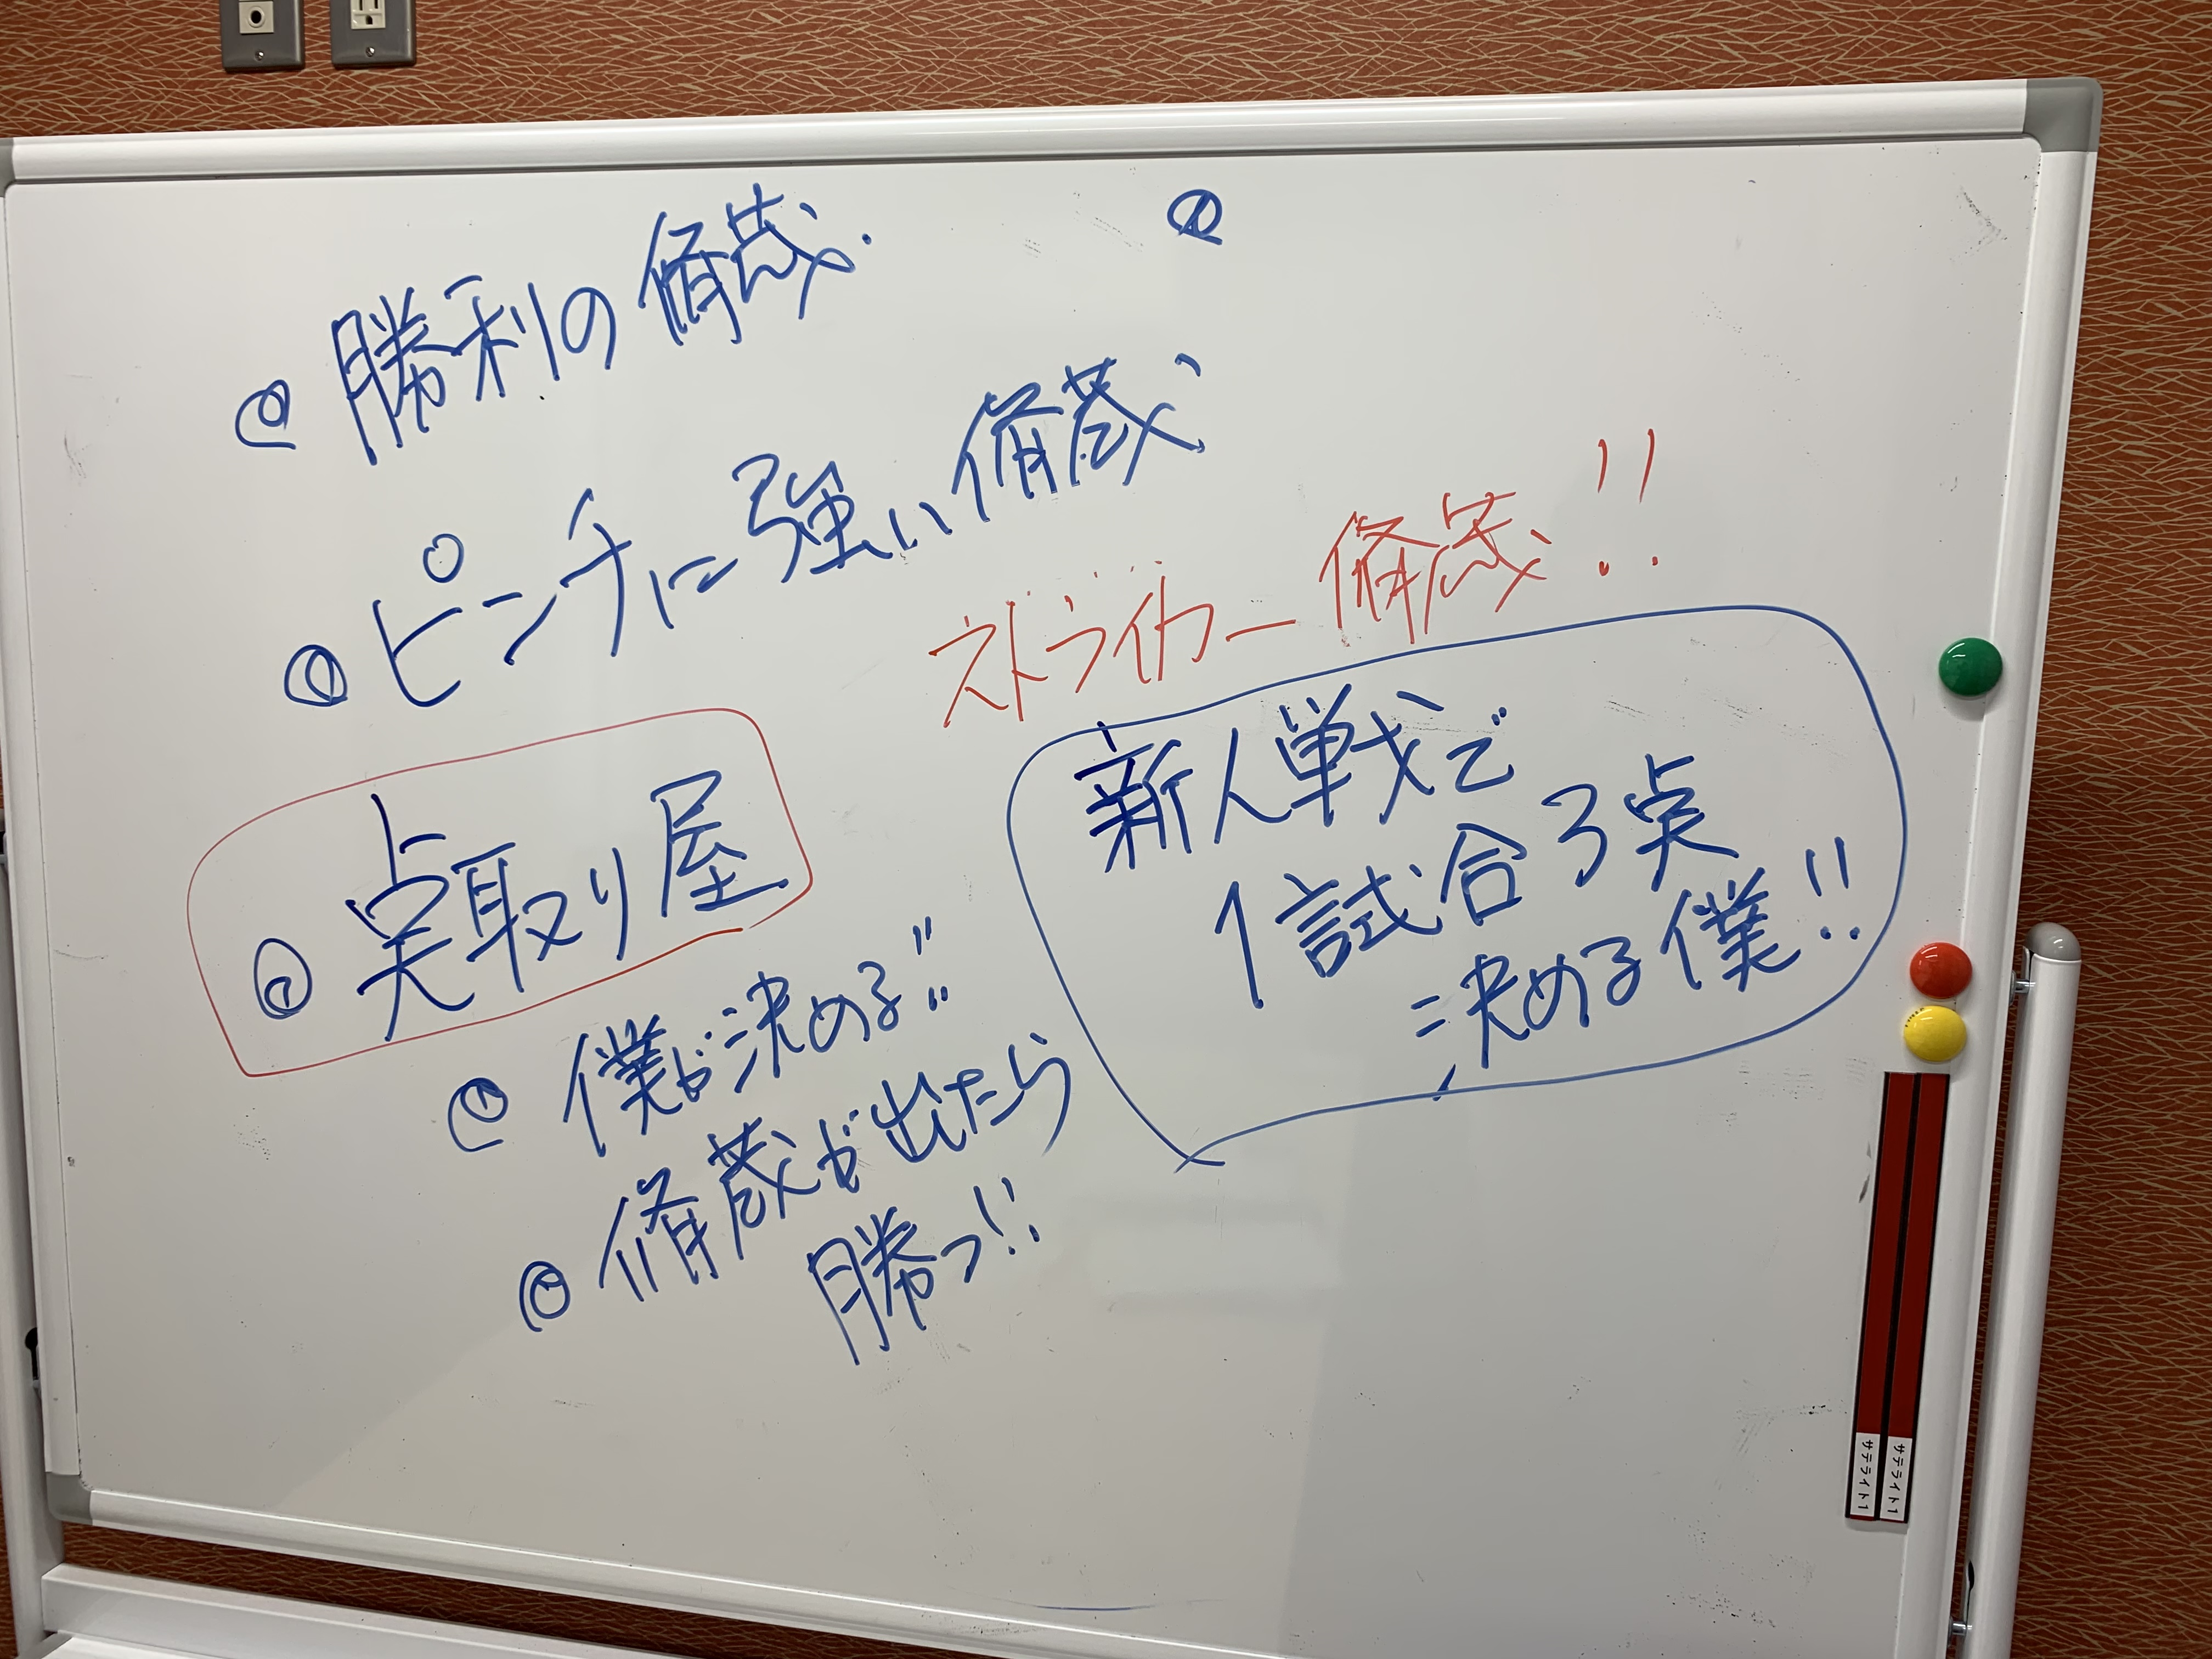 勝利の脩蔵
ピンチに強い脩蔵
ストライカー脩蔵!!
点取り屋
新人戦で
1試合3点
決める僕!!
僕が決める!!
脩蔵が出たら
勝つ!!
サテライト1
サテライト1